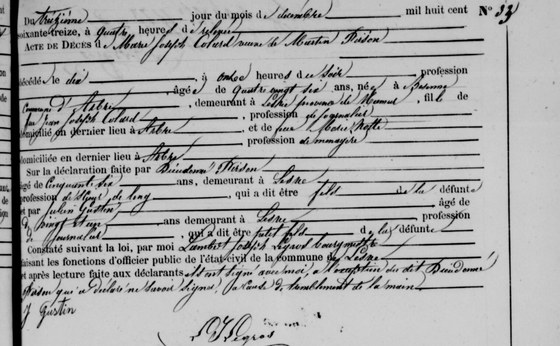 Du treizième jour du mois de décembre mil huit cent N° 32
soixante-treize, à quatre heures de relevée
ACTE DE DÉCÈS de Marie Joseph Colard veuve de Martin
décédé le dix à onze heures du soir, profession
, âgée de quatre vingt dix ans, née à
Commune d' Arbre, demeurant à Lesve province de Namur, fille de
feu Jean Joseph Colard, profession de journalier
domicilié en dernier lieu à Arbre, et de feue Marie
, profession de ménagère
domiciliée en dernier lieu à Arbre
Sur la déclaration faite par Dieudonné
âgé de cinquante six ans, demeurant à Lesve
profession de, qui a dit être fils de la défunte
et par Julien Gustin, âgé de
vingt ans demeurant à Lesve profession
de journalier, qui a dit être petit fils de la défunte
Constaté suivant la loi, par moi Lambert Joseph Legros bourgmestre
faisant les fonctions d'officier public de l'état-civil de la commune de Lesve
et après lecture faite aux déclarants ils ont signé avec moi, à l'exception du dit Dieudonné
qui a déclaré ne savoir signer à cause de tremblement de la main
J Gustin
Legros